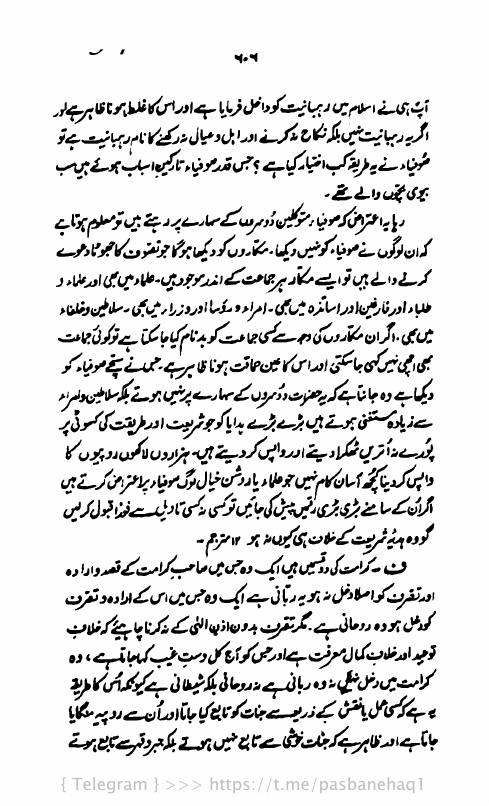 ۶۰۶
آپ ہی نے اسلام میں رہبانیت کو داخل فرمایا ہے اور اس کا غلط ہونا ظاہر ہے اور
اگر یہ رہبانیت نہیں بلکہ نکاح نہ کرنے اور اہل و عیال نہ رکھنے کا نام رہبانیت ہے تو
صوفیاء نے یہ طریقہ کب اختیار کیا ہے ؟ جس قدر صوفیاء تارکین اسباب ہوئے ہیں سب
بیوی بچوں والے تھے۔
رہا یہ اعتراض کہ صوفیاء متوکلین دوسروں کے سہارے پر رہتے ہیں تو معلوم ہوتا ہے
کہ ان لوگوں نے صوفیاء کو نہیں دیکھا۔ مکاروں کو دیکھا ہوگا جو تصوف کا جھوٹا دعوے
کرنے والے ہیں تو ایسے مکار ہر جماعت کے اندر موجود ہیں۔ علماء میں بھی اور علماء و
طلباء اور فارغین اور اساتذہ میں بھی۔ امراء و رؤسا اور وزراء میں بھی۔ سلاطین و خلفاء
میں بھی۔ اگر ان مکاروں کی وجہ سے کسی جماعت کو بدنام کیا جا سکتا ہے تو کوئی جماعت
بھی اچھی نہیں کہی جا سکتی اور اس کا عین حماقت ہونا ظاہر ہے۔ جس نے سچے صوفیاء کو
دیکھا ہے وہ جانتا ہے کہ یہ حضرات دوسروں کے سہارے پر نہیں ہوتے بلکہ سلاطین و امراء
سے زیادہ مستغنی ہوتے ہیں بڑے بڑے ہدایا کو جو شریعت اور طریقت کی کسوٹی پر
پورے نہ اتریں ٹھکرا دیتے اور واپس کر دیتے ہیں۔ ہزاروں لاکھوں روپیوں کا
واپس کر دینا کچھ آسان کام نہیں جو علماء یا روشن خیال لوگ صوفیاء پر اعتراض کرتے ہیں
اگر ان کے سامنے بڑی بڑی رقمیں پیش کی جائیں تو کسی نہ کسی تاویل سے فورًا قبول کر لیں
گو وہ ہدیہ شریعت کے خلاف ہی کیوں نہ ہو ۱۲ مترجم۔
ف ۔ کرامت کی دو قسمیں ہیں ایک وہ جس میں صاحب کرامت کے قصد و ارادہ
اور تصرف کو اصلا دخل نہ ہو یہ ربانی ہے ایک وہ جس میں اس کے ارادہ و تصرف
کو دخل ہو وہ روحانی ہے۔ مگر تصرف بدون اذن الٰہی کے نہ کرنا چاہیئے کہ خلاف
توحید اور خلاف کمال معرفت ہے اور جس کو آج کل دست غیب کہا جاتا ہے ، وہ
کرامت میں داخل نہیں نہ وہ ربانی ہے نہ روحانی بلکہ شیطانی ہے کیونکہ اس کا طریقہ
یہ ہے کہ کسی عمل یا نقش کے ذریعہ سے جنات کو تابع کیا جاتا اور ان سے روپیہ منگایا
جاتا ہے اور ظاہر ہے کہ جنات خوشی سے تابع نہیں ہوتے بلکہ جبر و قہر سے تابع ہوتے
{ Telegram } >>> https://t.me/pasbanehaq1